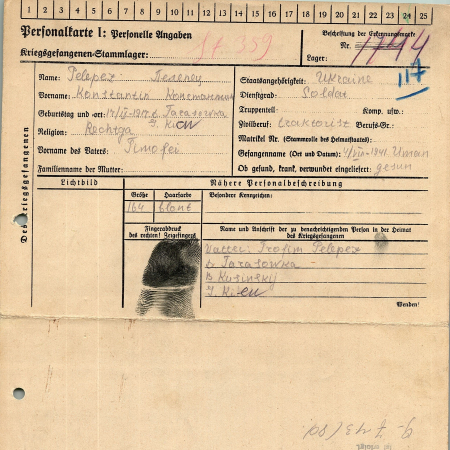 1 2 3 4 5 6 7 8 9 10 11 12 13 14 15 16 17 18 19 20 21 22 23 24 25
Personalkarte I: Personelle Angaben
Kriegsgefangenen-Stammlager:
Beschriftung der Erkennungsmarke
Nr. 1744
Lager:
117
Des Kriegsgefangenen
Name: Pelepez Пелепец
Vorname: Konstantin Константин
Geburtstag und -ort: Tarasowka
G. Kiew
Religion:
Vorname des Vaters: Timofei
Familienname der Mutter:
Staatsangehörigkeit: Ukraine
Dienstgrad: Soldat
Truppenteil: Komp. usw.:
Zivilberuf: traktorist Berufs-Gr.:
Matrikel Nr. (Stammrolle des Heimatstaates):
Gefangennahme (Ort und Datum): 4/VIII-1941. Uman
Ob gesund, krank, verwundet eingeliefert: gesun
Lichtbild
Nähere Personalbeschreibung
Größe Haarfarbe Besondere Kennzeichen:
164 blont
Fingerabdruck
des rechten! Zeigefingers
Name und Anschrift der zu benachrichtigenden Person in der Heimat
des Kriegsgefangenen
Vatter: Trofim Pelepez
D. Tarasowka
G. Kiew
Wenden!